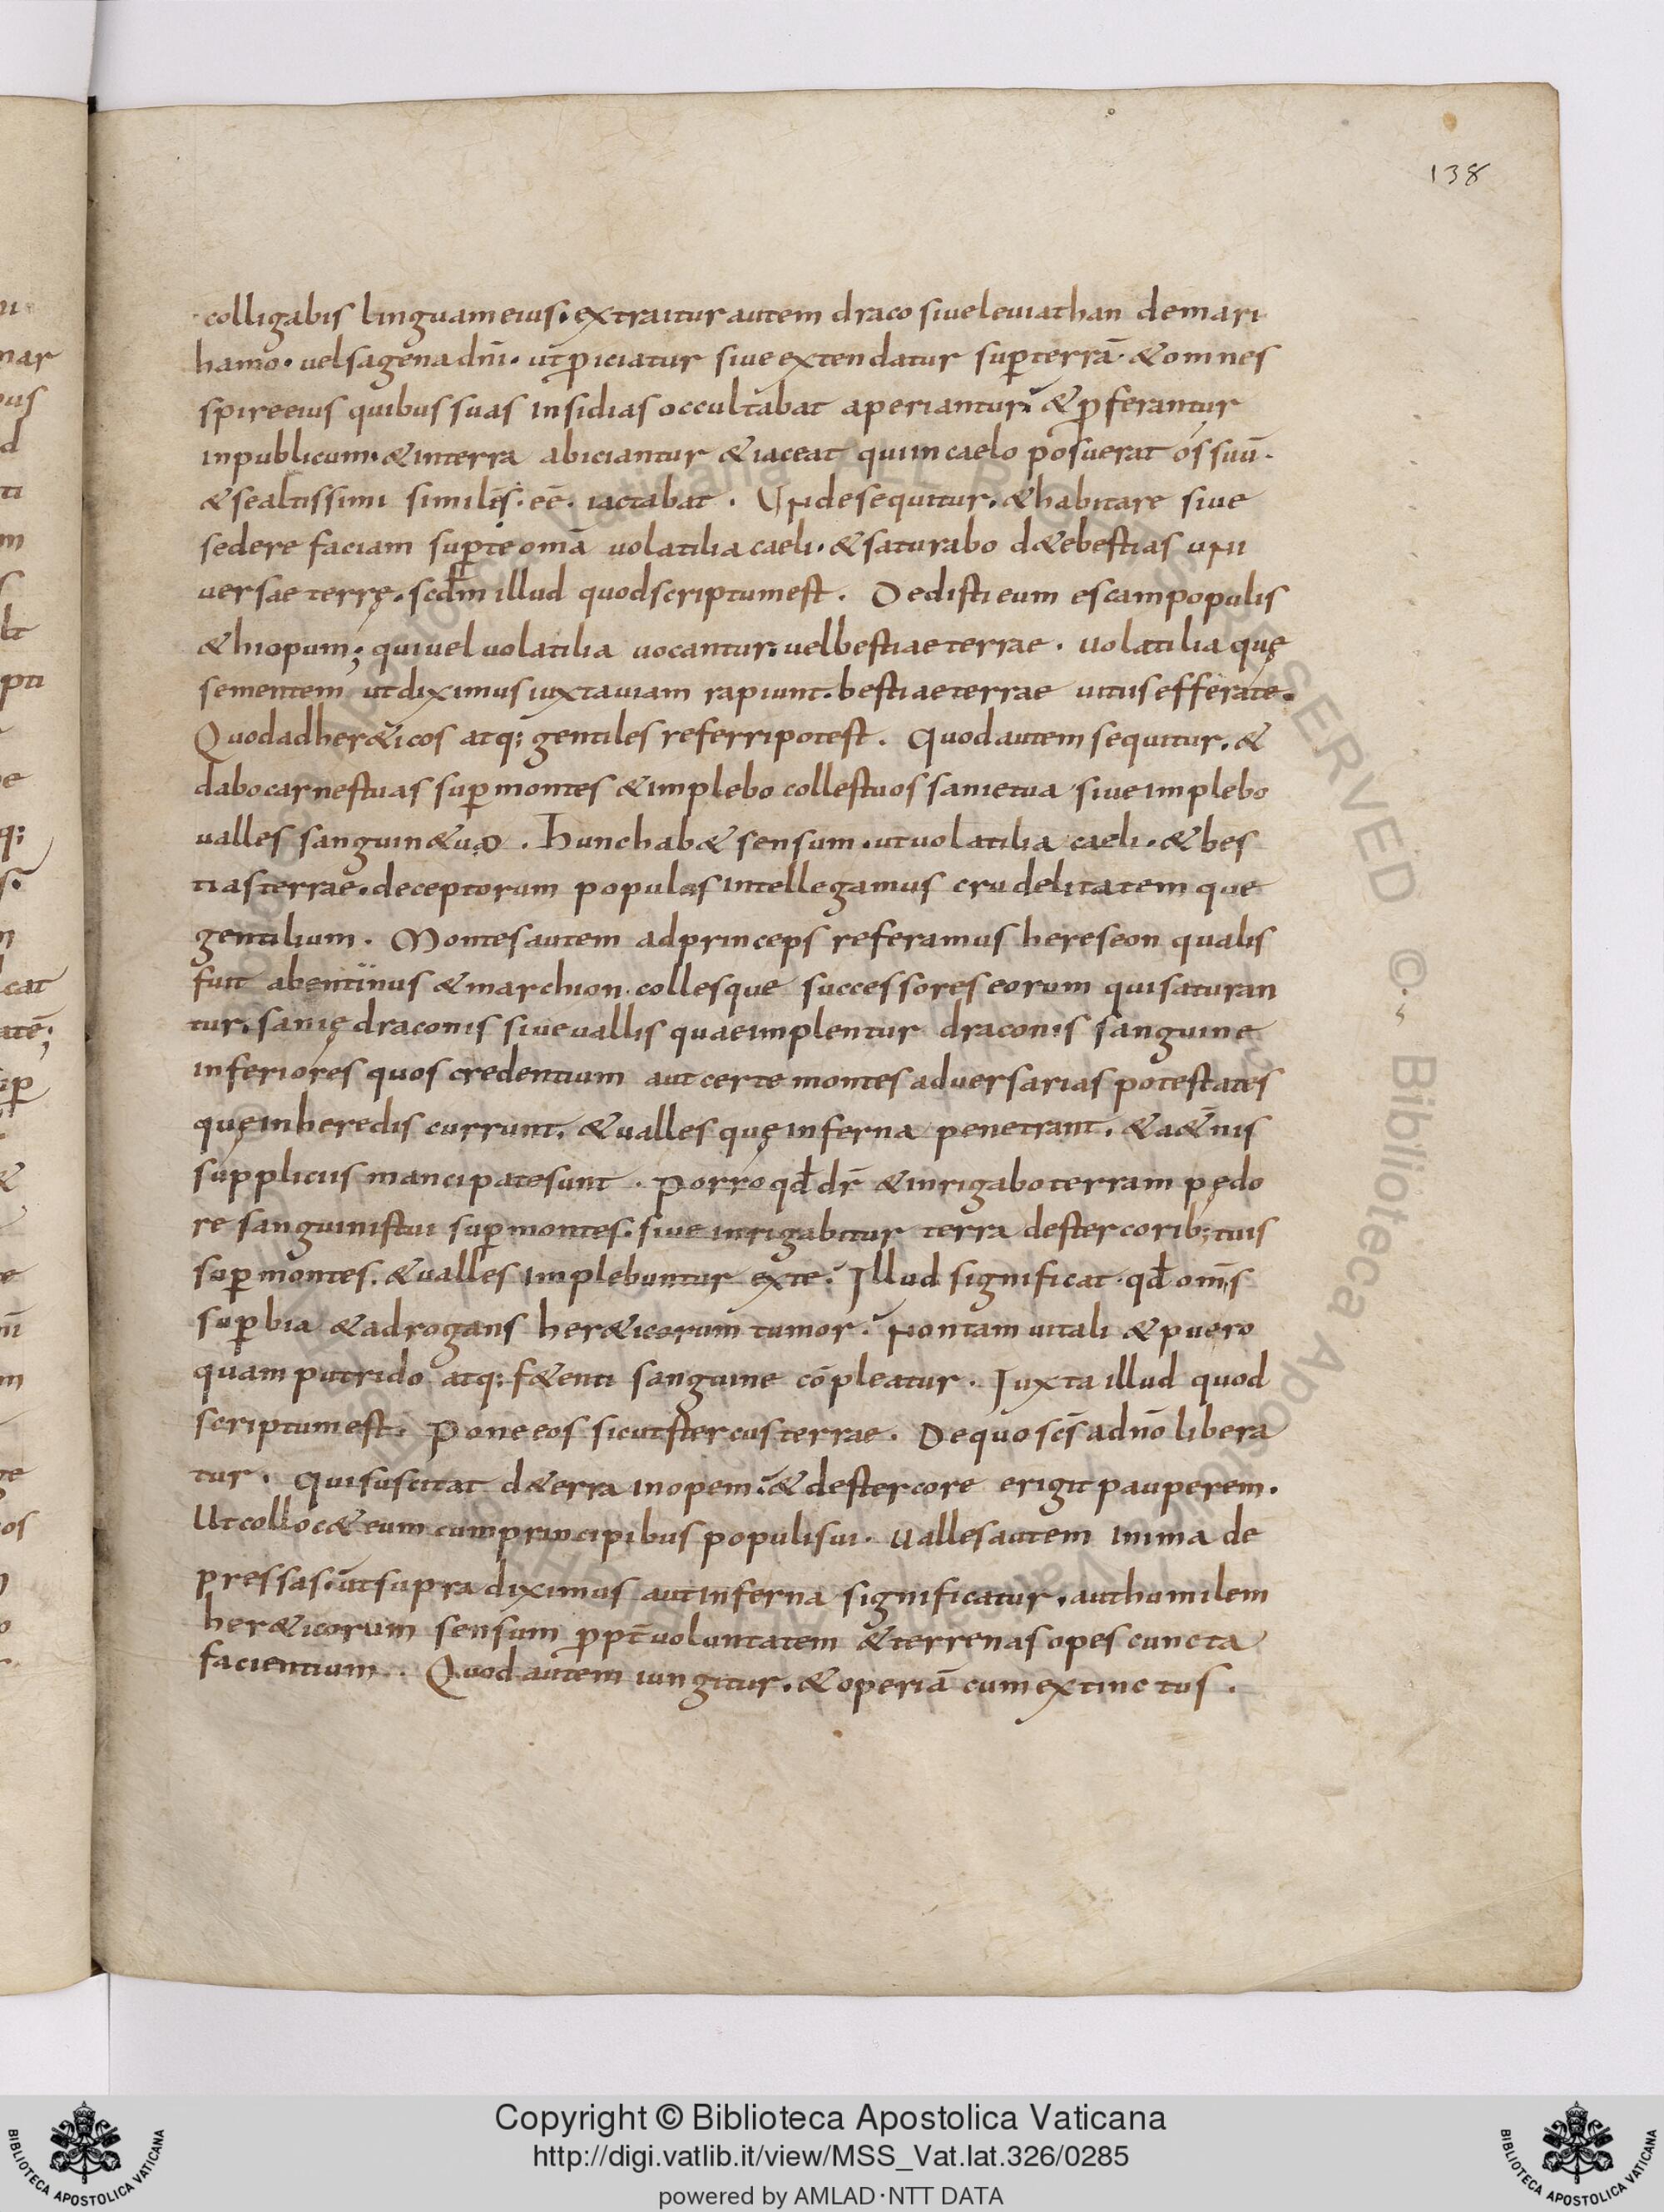 138
colligabis linguam eius. extraitur autem draco siue leuiathan de mari
hamo. uel sagena dnī. ut ꝓiciatur siue extendatur sup̱ terrā. & omnes
spire eius quibus suas insidias occultabat aperiantur. & ꝓferantur
in publicum. & in terra abiciantur & iaceat qui in caelo posuerat os suū.
& se altissimi similẹs. eē. iactabat. Unde sequitur. & habitare siue
sedere faciam sup̱ te omā uolatilia caeli. & saturabo d&e bestias uni
uersae terrę. scđm illud quod scriptum est. Dedisti eum escam populis
&hiopum; qui uel uolatilia uocantur. uel bestiae terrae. uolatilia quę
sementem ut diximus iuxta uiam rapiunt. bestiae terrae uitiis efferate.
Quod ad her&icos atq; gentiles referri potest. Quod autem sequitur. &
dabo carnes tuas sup̱ montes & implebo colles tuos sanie tua siue implebo
ualles sanguin&uo. Hunc hab& sensum. ut uolatilia caeli. & bes
tias terrae. deceptorum populos intellegamus crudelitatem que
gentilium. Montes autem ad princeps referamus hereseon qualis
fuit abentinus & marchion. colles que successores eorum qui saturan
tur. sanię draconis siue uallis quae implentur draconis sanguine
inferiores quos credentium aut certe montes aduersarias potestates
quę in heredis currunt. & ualles quę inferna penetrant. & a&̄nis
suppliciis mancipate sunt. Porro qđ dr̄ & inrigabo terram pędo
re sanguinis tui sup̱ montes. siue inrigabitur terra de stercorib; tuis
sup̱ montes. & ualles implebuntur ex te. Illud significat. qđ omīs
sup̱bia & adrogans her&icorum tumor. Non tam uitali & puero
quam putrido atq; f&enti sanguine cōpleatur. Iuxta illud quod
scriptum est. Pone eos sicut stercus terrae. De quo scs̄ a dnō libera
tur. Qui suscitat d&erra inopem. & de stercore erigit pauperem.
Ut colloc& eum cum principibus populi sui. Ualles autem in ima de
pressas. ut supra diximus aut inferna significatur. aut humilem
her&icorum sensum ꝓpt̄ uoluntatem & terrenas opes cuncta
facientium. Quod autem iungitur. & operiā cum extinctus.
Copyright © Biblioteca Apostolica Vaticana
http://digi.vatlib.it/view/MSS_Vat.lat.326/0285
powered by AMLAD·NTT DATA
BIBLIOTECA APOSTOLICA VATICANA
BIBLIOTECA APOSTOLICA VATICANA